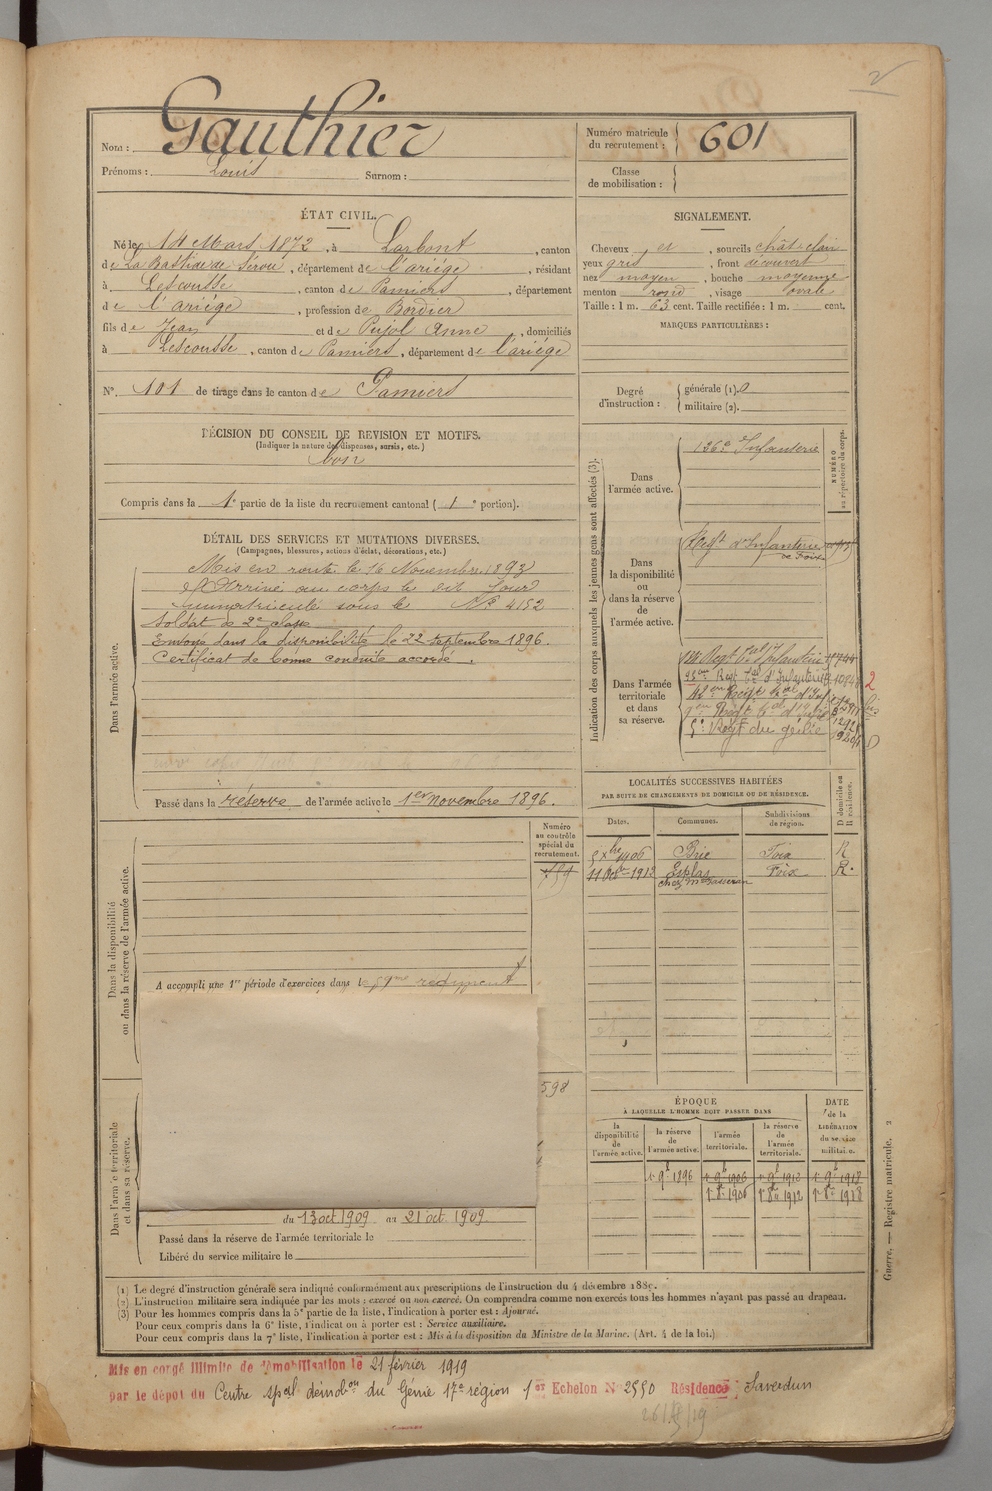 2
Nom : Gauthier
Prénoms : Louis Surnom :
Numéro matricule du recrutement : 601
Classe de mobilisation :
ÉTAT CIVIL.
Né le 14 Mars 1872, à Larbont, canton
de La Bastide de Sérou, département de l'ariége, résidant
à Lescousse, canton de Pamiers, département
de l'ariége, profession de Bordier
fils de Jean et de Pujol Anne, domiciliés
à Lescousse, canton de Pamiers, département de l'ariége
N° 101 de tirage dans le canton de Pamiers
SIGNALEMENT.
Cheveux et, sourcils chât-clair
yeux gris, front découvert
nez moyen, bouche moyenne
menton rond, visage ovale
Taille : 1 m. 63 cent. Taille rectifiée : 1 m. cent.
MARQUES PARTICULIÈRES :
Degré d'instruction :
générale (1). 0
militaire (2).
DÉCISION DU CONSEIL DE REVISION ET MOTIFS.
(Indiquer la nature des dispenses, sursis, etc.)
bon
Compris dans la 1e partie de la liste du recrutement cantonal (1e portion).
DÉTAIL DES SERVICES ET MUTATIONS DIVERSES.
(Campagnes, blessures, actions d'éclat, décorations, etc.)
Dans l'armée active.
Mis en route le 16 Novembre 1893
Arrivé au corps le dit Jour
immatriculé sous le N° 4152
Soldat de 2e classe
Envoyé dans la disponibilité le 22 septembre 1896.
Certificat de bonne conduite accordé.
Passé dans la réserve de l'armée active le 1er novembre 1896.
Indication des corps auxquels les jeunes gens sont affectés (3).
NUMÉRO au répertoire du corps.
Dans l'armée active.
126e Infanterie
Dans la disponibilité ou dans la réserve de l'armée active.
Regt d'Infanterie
de Foix
Dans l'armée territoriale et dans sa réserve.
Regt tal d'Infanterie
10848
5e Regt du génie
2
bis
LOCALITÉS SUCCESSIVES HABITÉES
PAR SUITE DE CHANGEMENTS DE DOMICILE OU DE RÉSIDENCE.
Dates. Communes. Subdivisions de région. D domicile ou R résidence.
5 Xbre 1906 Brie Foix R
11 1912 Esplas Foix R.
Dans la disponibilité ou dans la réserve de l'armée active.
Numéro au contrôle spécial du recrutement.
A accompli une 1re période d'exercices dans le 59me regiment
598
Dans l'armée territoriale et dans sa réserve.
du 13 oct 1909 au 21 oct 1909
Passé dans la réserve de l'armée territoriale le
Libéré du service militaire le
ÉPOQUE
À LAQUELLE L'HOMME DOIT PASSER DANS
DATE de la LIBÉRATION du service militaire.
la disponibilité de l'armée active. la réserve de l'armée active. l'armée territoriale. la réserve de l'armée territoriale.
1r 9b 1896 1r 9b 1906 1r 9b 1912 1r 9b 1918
1r 8b 1906 1r 8b 1912 1r 8b 1918
Guerre. — Registre matricule. 2
(1) Le degré d'instruction générale sera indiqué conformément aux prescriptions de l'instruction du 4 décembre 1889.
(2) L'instruction militaire sera indiquée par les mots : exercé ou non exercé. On comprendra comme non exercés tous les hommes n'ayant pas passé au drapeau.
(3) Pour les hommes compris dans la 5e partie de la liste, l'indication à porter est : Ajourné.
Pour ceux compris dans la 6e liste, l'indication à porter est : Service auxiliaire.
Pour ceux compris dans la 7e liste, l'indication à porter est : Mis à la disposition du Ministre de la Marine. (Art. 4 de la loi.)
Mis en congé illimité de démobilisation le 21 février 1919
par le dépôt du Centre spal démobon du Génie 17e région 1er Echelon N° 2550 Résidence : Saverdun